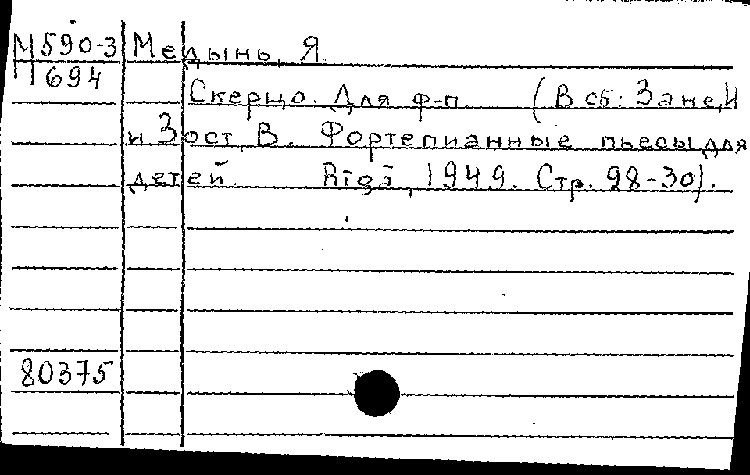 М590-3 Медынь, Я.
П694
Скерцо. Для ф-п. (В сб: Зане, И
и Зост, В. Фортепианные пьесы для
детей. Rīgā, 1949. Стр. 28-30).
80375